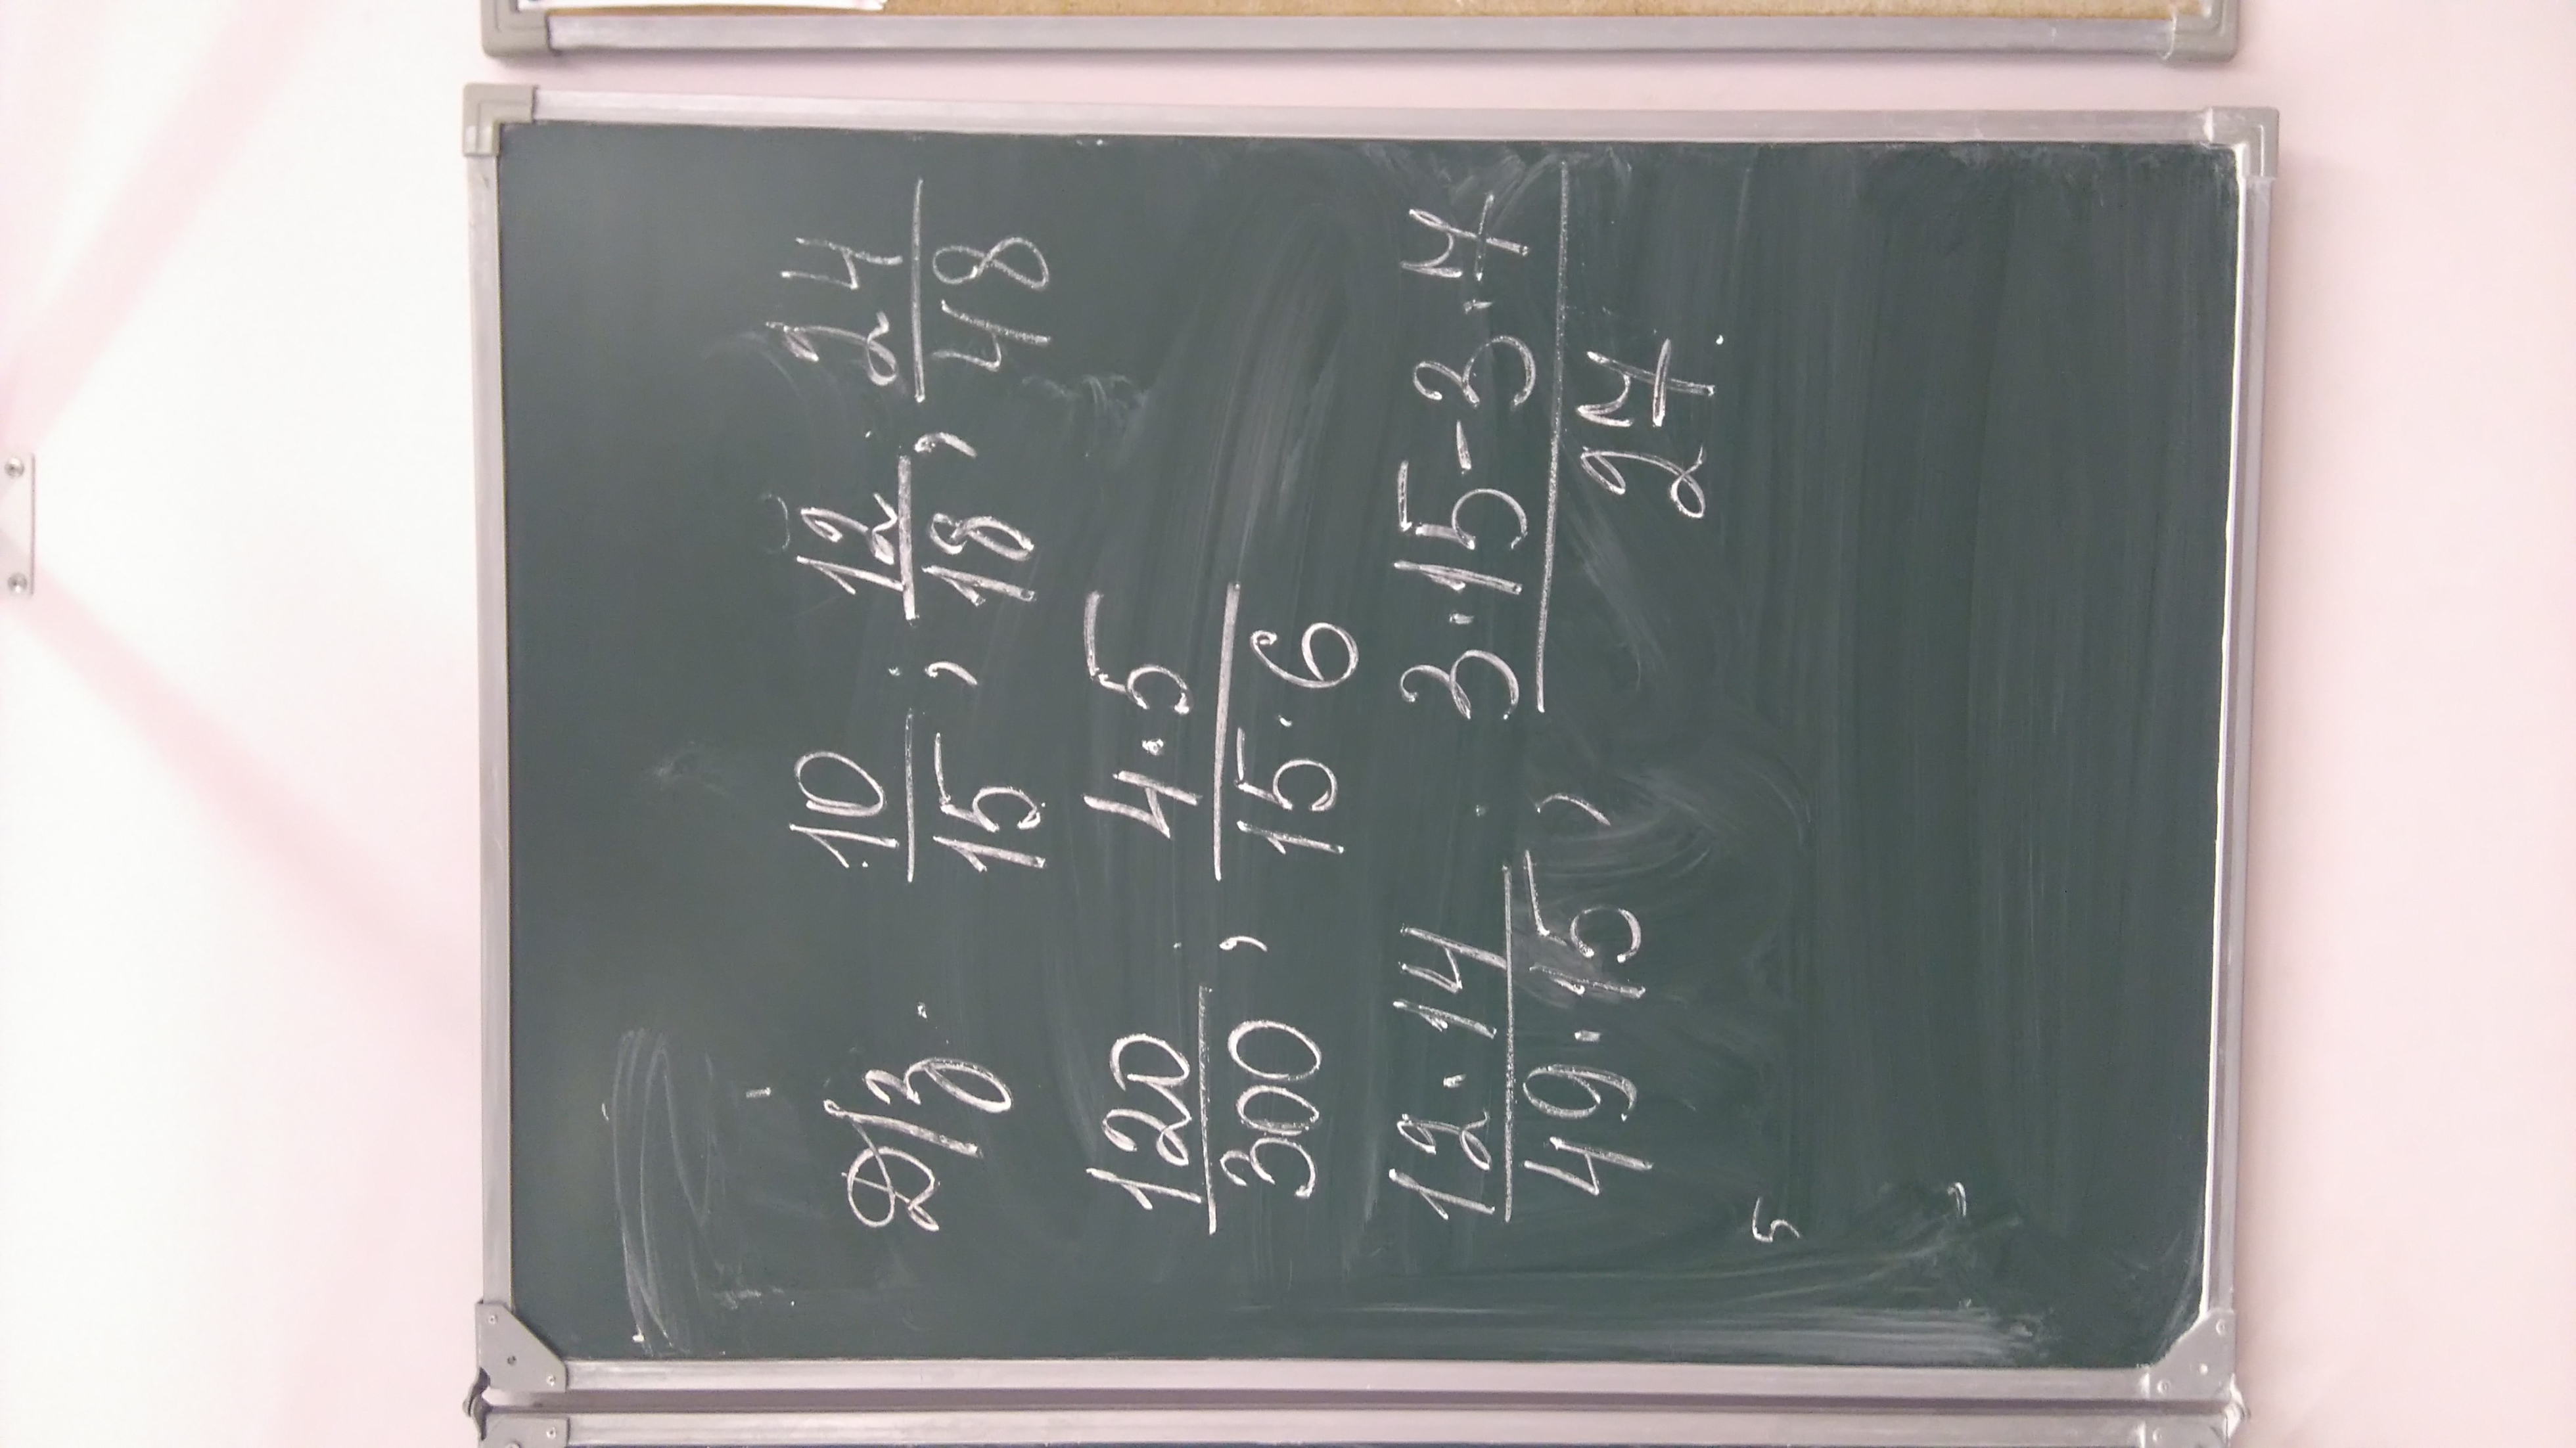 Д/з. 10/15; 12/18; 24/48
120/300; 4·5/15·6
12·14/49·15; 3·15-3·7/27.